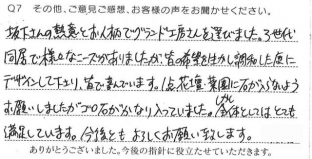 Q7 その他、ご意見ご感想、お客様の声をお聞かせください。
坂下さんの熱意とお人柄でグランド工房さんを選びました。3世代
同居で様々なニーズがありましたが、皆の希望を生かし調和した庭に
デザインして下さり、皆で喜んでいます。1点花壇・菜園に石が入らないよう
お願いしましたがゴロ石がかなり入っていました。しかし全体としてはとても
満足しています。今後ともよろしくお願い致します。
ありがとうございました。今後の指針に役立たせていただきます。